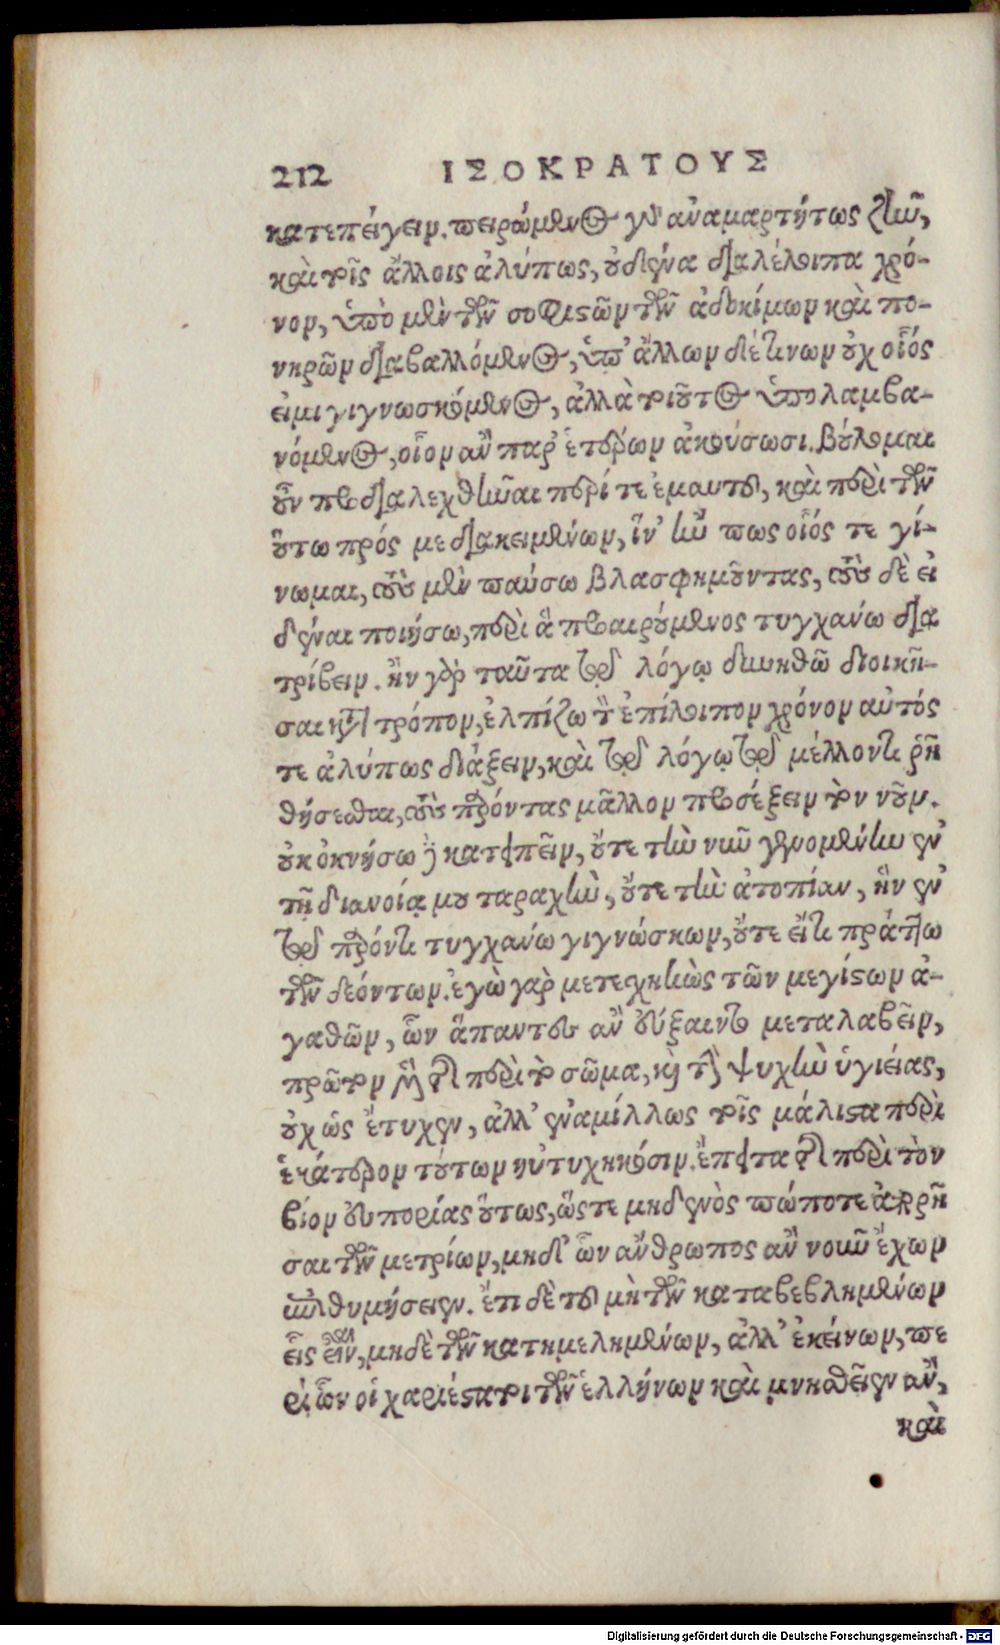 212 ΙΣΟΚΡΑΤΟΥΣ
κατεπείγειν. πειρώμενος γὰρ ἀναμαρτήτως ζῆν,
καὶ τοῖς ἄλλοις ἀλύπως, οὐδένα διαλέλοιπα χρό-
νον, ὑπὸ μὲν τῶν σοφιστῶν τῶν ἀδοκίμων καὶ πο-
νηρῶν διαβαλλόμενος, ὑπ' ἄλλων δέ τινων οὐχ οἷός
εἰμι γιγνωσκόμενος, ἀλλὰ τοιοῦτος ὑπολαμβα-
νόμενος, οἷον ἂν παρ' ἑτέρων ἀκούσωσι. βούλομαι
οὖν προδιαλεχθῆναι περί τε ἐμαυτοῦ, καὶ περὶ τῶν
οὕτω πρός με διακειμένων, ἵν' ἤν πως οἷός τε γέ-
νωμαι, τοὺς μὲν παύσω βλασφημοῦντας, τοὺς δὲ εἰ
δέναι ποιήσω, περὶ ἃ προαιρούμενος τυγχάνω δια
τρίβειν. ἢν γὰρ ταῦτα τῷ λόγῳ δυνηθῶ διοικῆ-
σαι κατὰ τρόπον, ἐλπίζω τὸν ἐπίλοιπον χρόνον αὐτός
τε ἀλύπως διάξειν, καὶ τῷ λόγῳ τῷ μέλλοντι ῥη
θήσεσθαι, τοὺς παρόντας μᾶλλον προσέξειν τὸν νοῦν.
οὐκ ὀκνήσω δὲ κατειπεῖν, οὔτε τὴν νῦν γενομένην ἐν
τῇ διανοίᾳ μου ταραχὴν, οὔτε τὴν ἀτοπίαν, ἣν ἐν
τῷ παρόντι τυγχάνω γιγνώσκων, οὔτε εἴ τι πράττω
τῶν δεόντων. ἐγὼ γὰρ μετεσχηκὼς τῶν μεγίστων ἀ-
γαθῶν, ὧν ἅπαντες ἂν εὔξαιντο μεταλαβεῖν,
πρῶτον μὲν τῆς περὶ τὸ σῶμα, καὶ τὴν ψυχὴν ὑγιείας,
οὐχ ὡς ἔτυχεν, ἀλλ' ἐναμίλλως τοῖς μάλιστα περὶ
ἑκάτερον τούτων ηὐτυχηκόσιν. ἔπειτα τῆς περὶ τὸν
βίον εὐπορίας οὕτως, ὥστε μηδενὸς πώποτε ἀπορῆ
σαι τῶν μετρίων, μηδ' ὧν ἄνθρωπος ἂν νοῦν ἔχων
ἐπιθυμήσειεν. ἔτι δὲ τοῦ μὴ τῶν καταβεβλημένων
εἷς εἶναι, μηδὲ τῶν κατημελημένων, ἀλλ' ἐκείνων, πε
ρὶ ὧν οἱ χαριέστατοι τῶν ἑλλήνων καὶ μνησθεῖεν ἂν,
καὶ
Digitalisierung gefördert durch die Deutsche Forschungsgemeinschaft - DFG